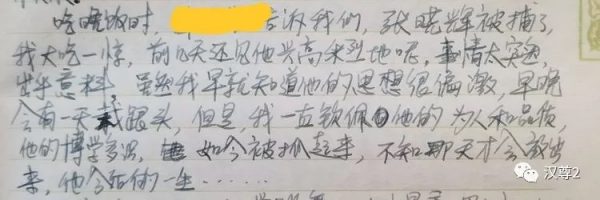 吃晚饭时 告诉我们，张晓辉被捕了
我大吃一惊，前几天还见他兴高采烈地呢。事情太突然，
出乎意料。虽然我早就知道他的思想很偏激，早晚
会有一天栽跟头，但是，我一直钦佩他的为人和品质，
他的博学多识，如今被抓起来，不知哪天才会放出
来，他会后悔一生……
汉尊2